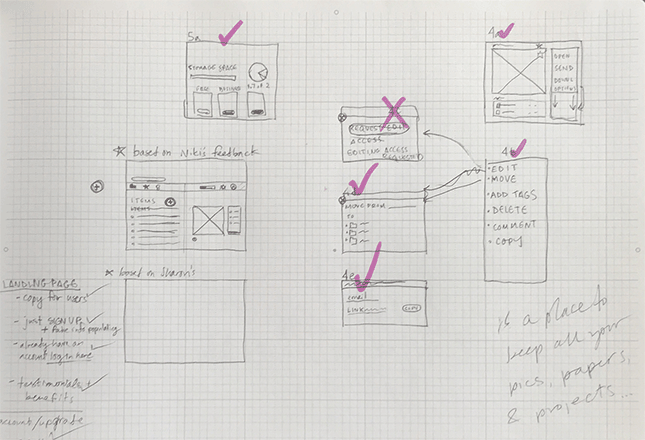 5a
STORAGE SPACE
FREE
* based on Niki's feedback
ITEMS
* based on Sharon's
LANDING PAGE
- copy for users
- just SIGN UP
- already have an
account log in here
- testimonials +
benefits
account/upgrade
REQUEST EDIT
ACCESS
EDITING ACCESS
REQUESTED
MOVE FROM
TO
4e
email
LINK
COPY
4a
OPEN
SEND
4b
• EDIT
• MOVE
• ADD TAGS
• DELETE
• COMMENT
• COPY
is a place to
keep all your
pics, papers,
& projects...